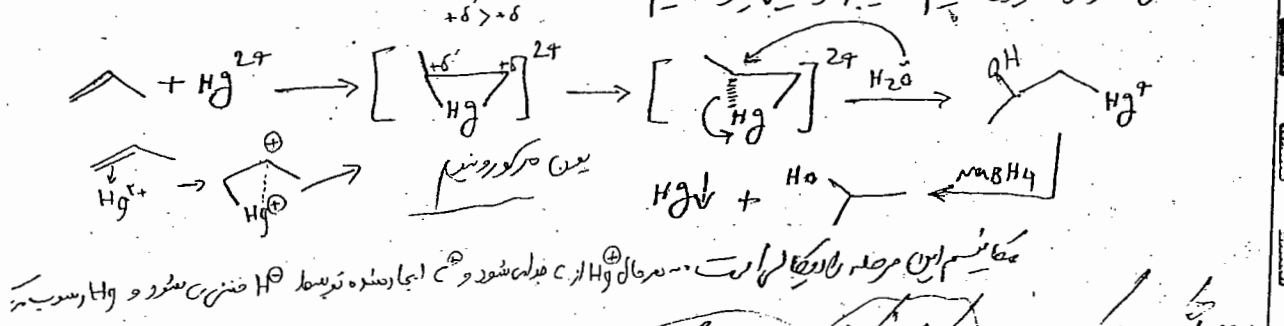 +δ' > +δ
+ Hg²⁺ → [ +δ' +δ Hg ]²⁺ → [ Hg ]²⁺ H₂O → OH Hg⁺
Hg²⁺ → ⊕ Hg⊕ → یون مرکورونیوم Hg↓ + HO ← NaBH4
مکانیسم این مرحله رادیکالی است به هرحال Hg⊕ از C جدا می شود و C⊕ ایجاد شده توسط H⊖ خنثی می شود و Hg رسوب